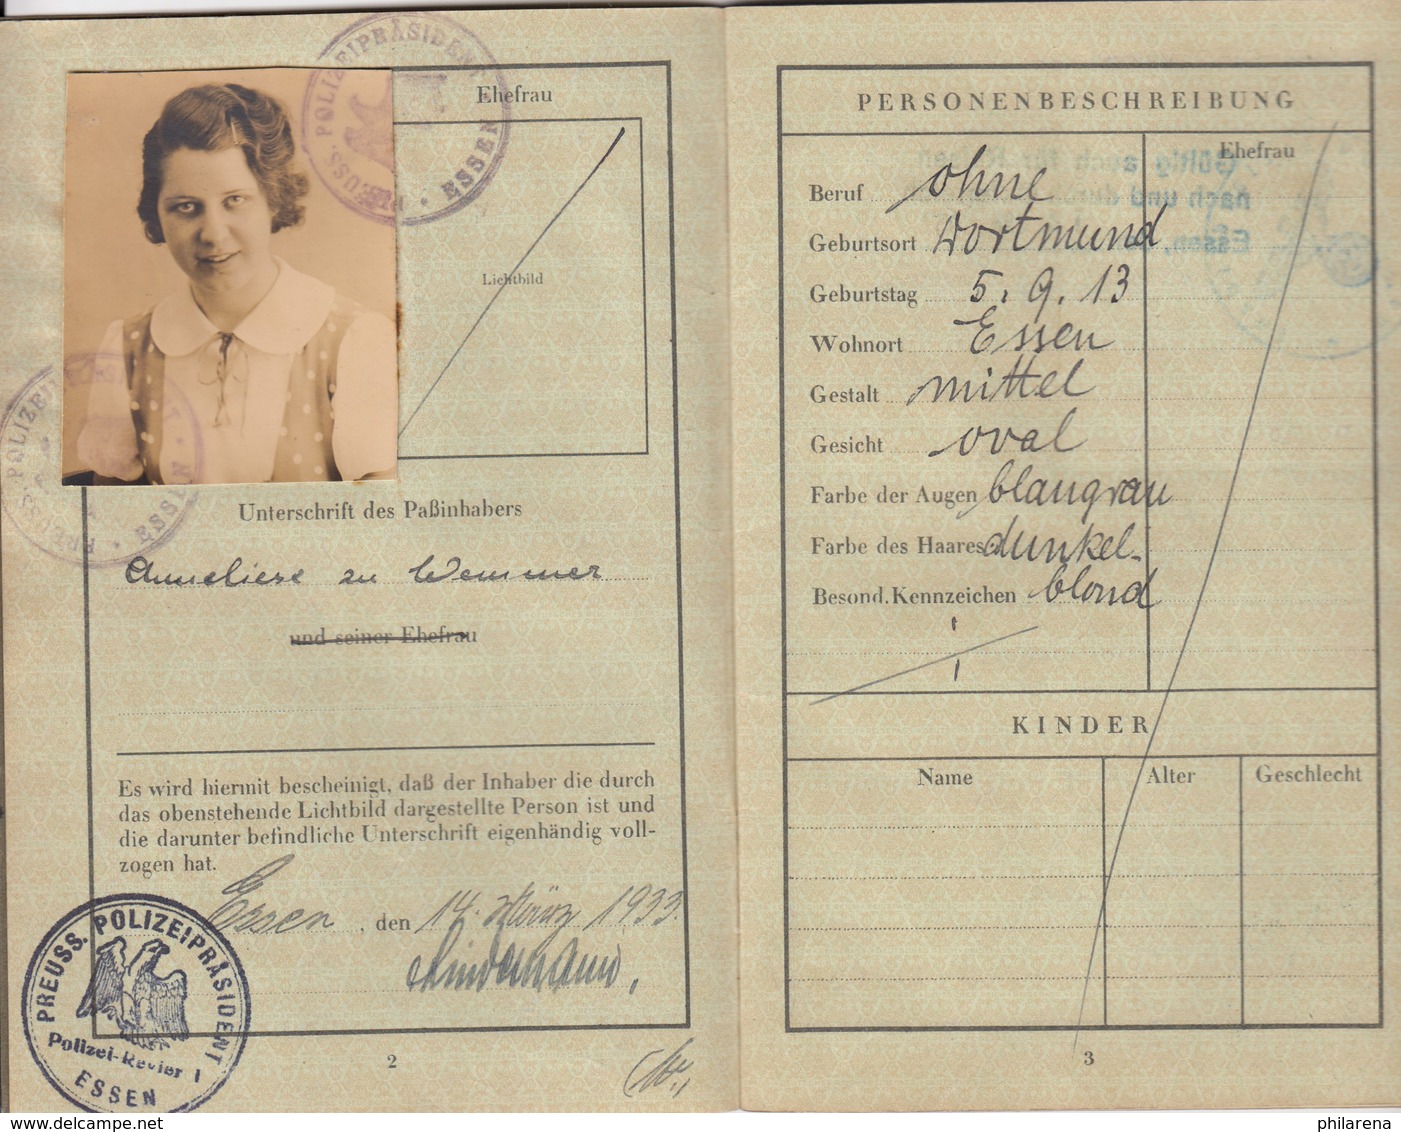 PREUSS. POLIZEIPRÄSIDENT
ESSEN
Ehefrau
Lichtbild
PREUSS. POLIZEIPRÄSIDENT
ESSEN
Unterschrift des Paßinhabers
Anneliese zu Wemmer
und seiner Ehefrau
Es wird hiermit bescheinigt, daß der Inhaber die durch
das obenstehende Lichtbild dargestellte Person ist und
die darunter befindliche Unterschrift eigenhändig voll-
zogen hat.
Essen, den 14. März 1933.
Lindemann,
PREUSS. POLIZEIPRÄSIDENT
Polizei-Revier 1
ESSEN
2
PERSONENBESCHREIBUNG
Ehefrau
Beruf ohne
Geburtsort Dortmund
Geburtstag 5. 9. 13
Wohnort Essen
Gestalt mittel
Gesicht oval
Farbe der Augen blaugrau
Farbe des Haares dunkel-
Besond. Kennzeichen blond
Gültig auch für
nach und
Essen,
KINDER
Name Alter Geschlecht
3
philarena